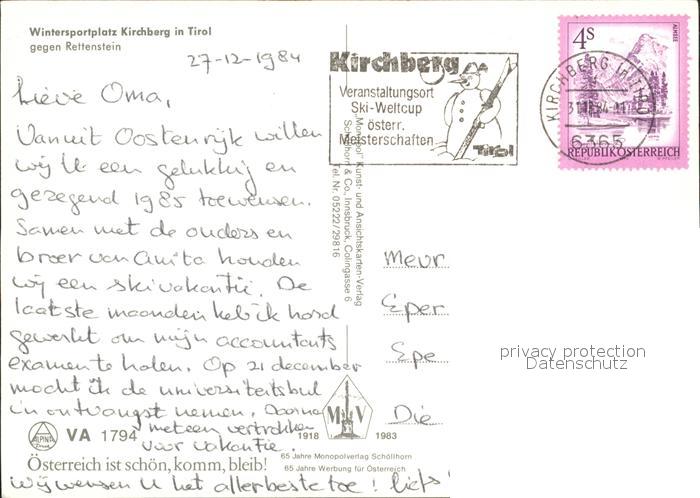 Wintersportplatz Kirchberg in Tirol
gegen Rettenstein
27-12-1984
Lieve Oma,
Vanuit Oostenrijk willen
wij U een gelukkig en
gezegend 1985 toewensen.
Samen met de ouders en
broer van Anita houden
wij een skivakantie. De
laatste maanden heb ik hard
gewerkt om mijn accountants
examen te halen. Op 21 december
mocht ik de universiteitsbul
in ontvangst nemen. Daarna
meteen vertrokken
voor vakantie.
VA 1794
Österreich ist schön, komm, bleib!
Wij wensen U het allerbeste toe! liefs!
Kirchberg
Veranstaltungsort
Ski-Weltcup
österr.
Meisterschaften
Tirol
KIRCHBERG IN TIROL
6365
4S
ALMSEE
REPUBLIK ÖSTERREICH
"Monopol" Kunst- und Ansichtskarten-Verlag
Schöllhorn & Co., Innsbruck, Colingasse 6
Tel. Nr. 05222/29816
Mevr
Eper
Epe
Die
privacy protection
Datenschutz
M V
1918 1983
65 Jahre Monopolverlag Schöllhorn
65 Jahre Werbung für Österreich
ALPINA